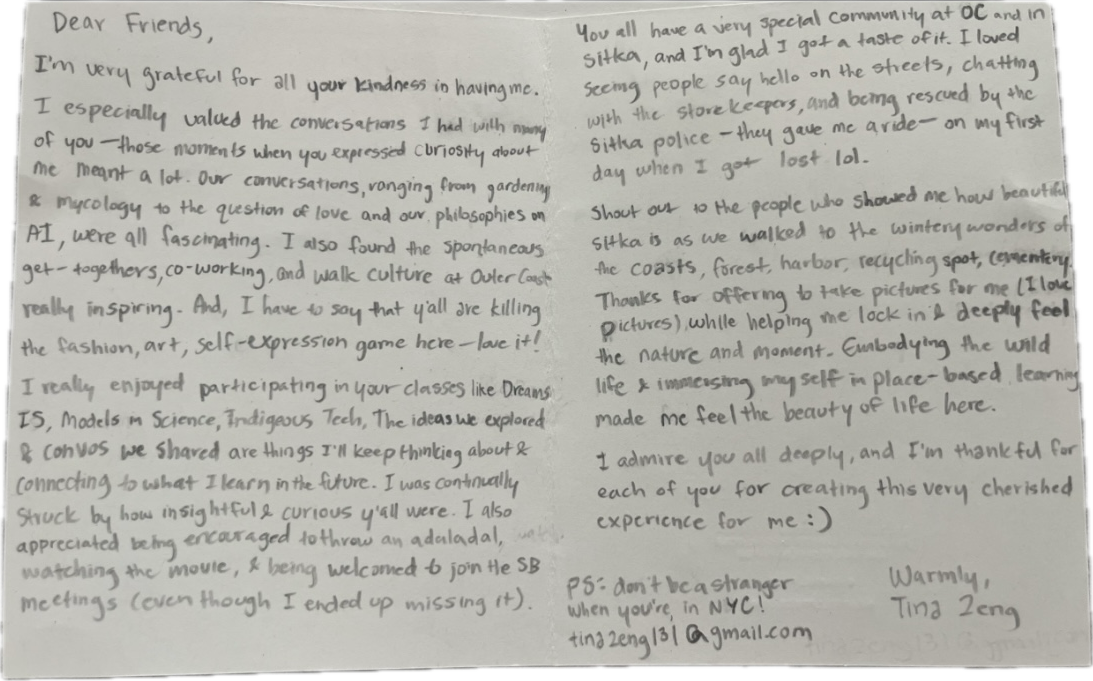 Dear Friends,
I'm very grateful for all your kindness in having me.
I especially valued the conversations I had with many
of you — those moments when you expressed curiosity about
me meant a lot. Our conversations, ranging from gardening
& mycology to the question of love and our philosophies on
AI, were all fascinating. I also found the spontaneous
get-togethers, co-working, and walk culture at Outer Coast
really inspiring. And, I have to say that y'all are killing
the fashion, art, self-expression game here — love it!
I really enjoyed participating in your classes like Dreams
IS, Models in Science, Indigeous Tech, The ideas we explored
& convos we shared are things I'll keep thinking about &
connecting to what I learn in the future. I was continually
struck by how insightful & curious y'all were. I also
appreciated being encouraged to throw an adaladal,
watching the movie, & being welcomed to join the SB
meetings (even though I ended up missing it).
You all have a very special community at OC and in
Sitka, and I'm glad I got a taste of it. I loved
seeing people say hello on the streets, chatting
with the storekeepers, and being rescued by the
Sitka police — they gave me a ride — on my first
day when I got lost lol.
Shout out to the people who showed me how beautiful
Sitka is as we walked to the wintery wonders of
the coasts, forest, harbor, recycling spot, cementery.
Thanks for offering to take pictures for me (I love
pictures), while helping me lock in & deeply feel
the nature and moment. Embodying the wild
life & immersing myself in place-based learning
made me feel the beauty of life here.
I admire you all deeply, and I'm thankful for
each of you for creating this very cherished
experience for me :)
PS: don't be a stranger
when you're in NYC!
tinazeng131@gmail.com
Warmly,
Tina Zeng